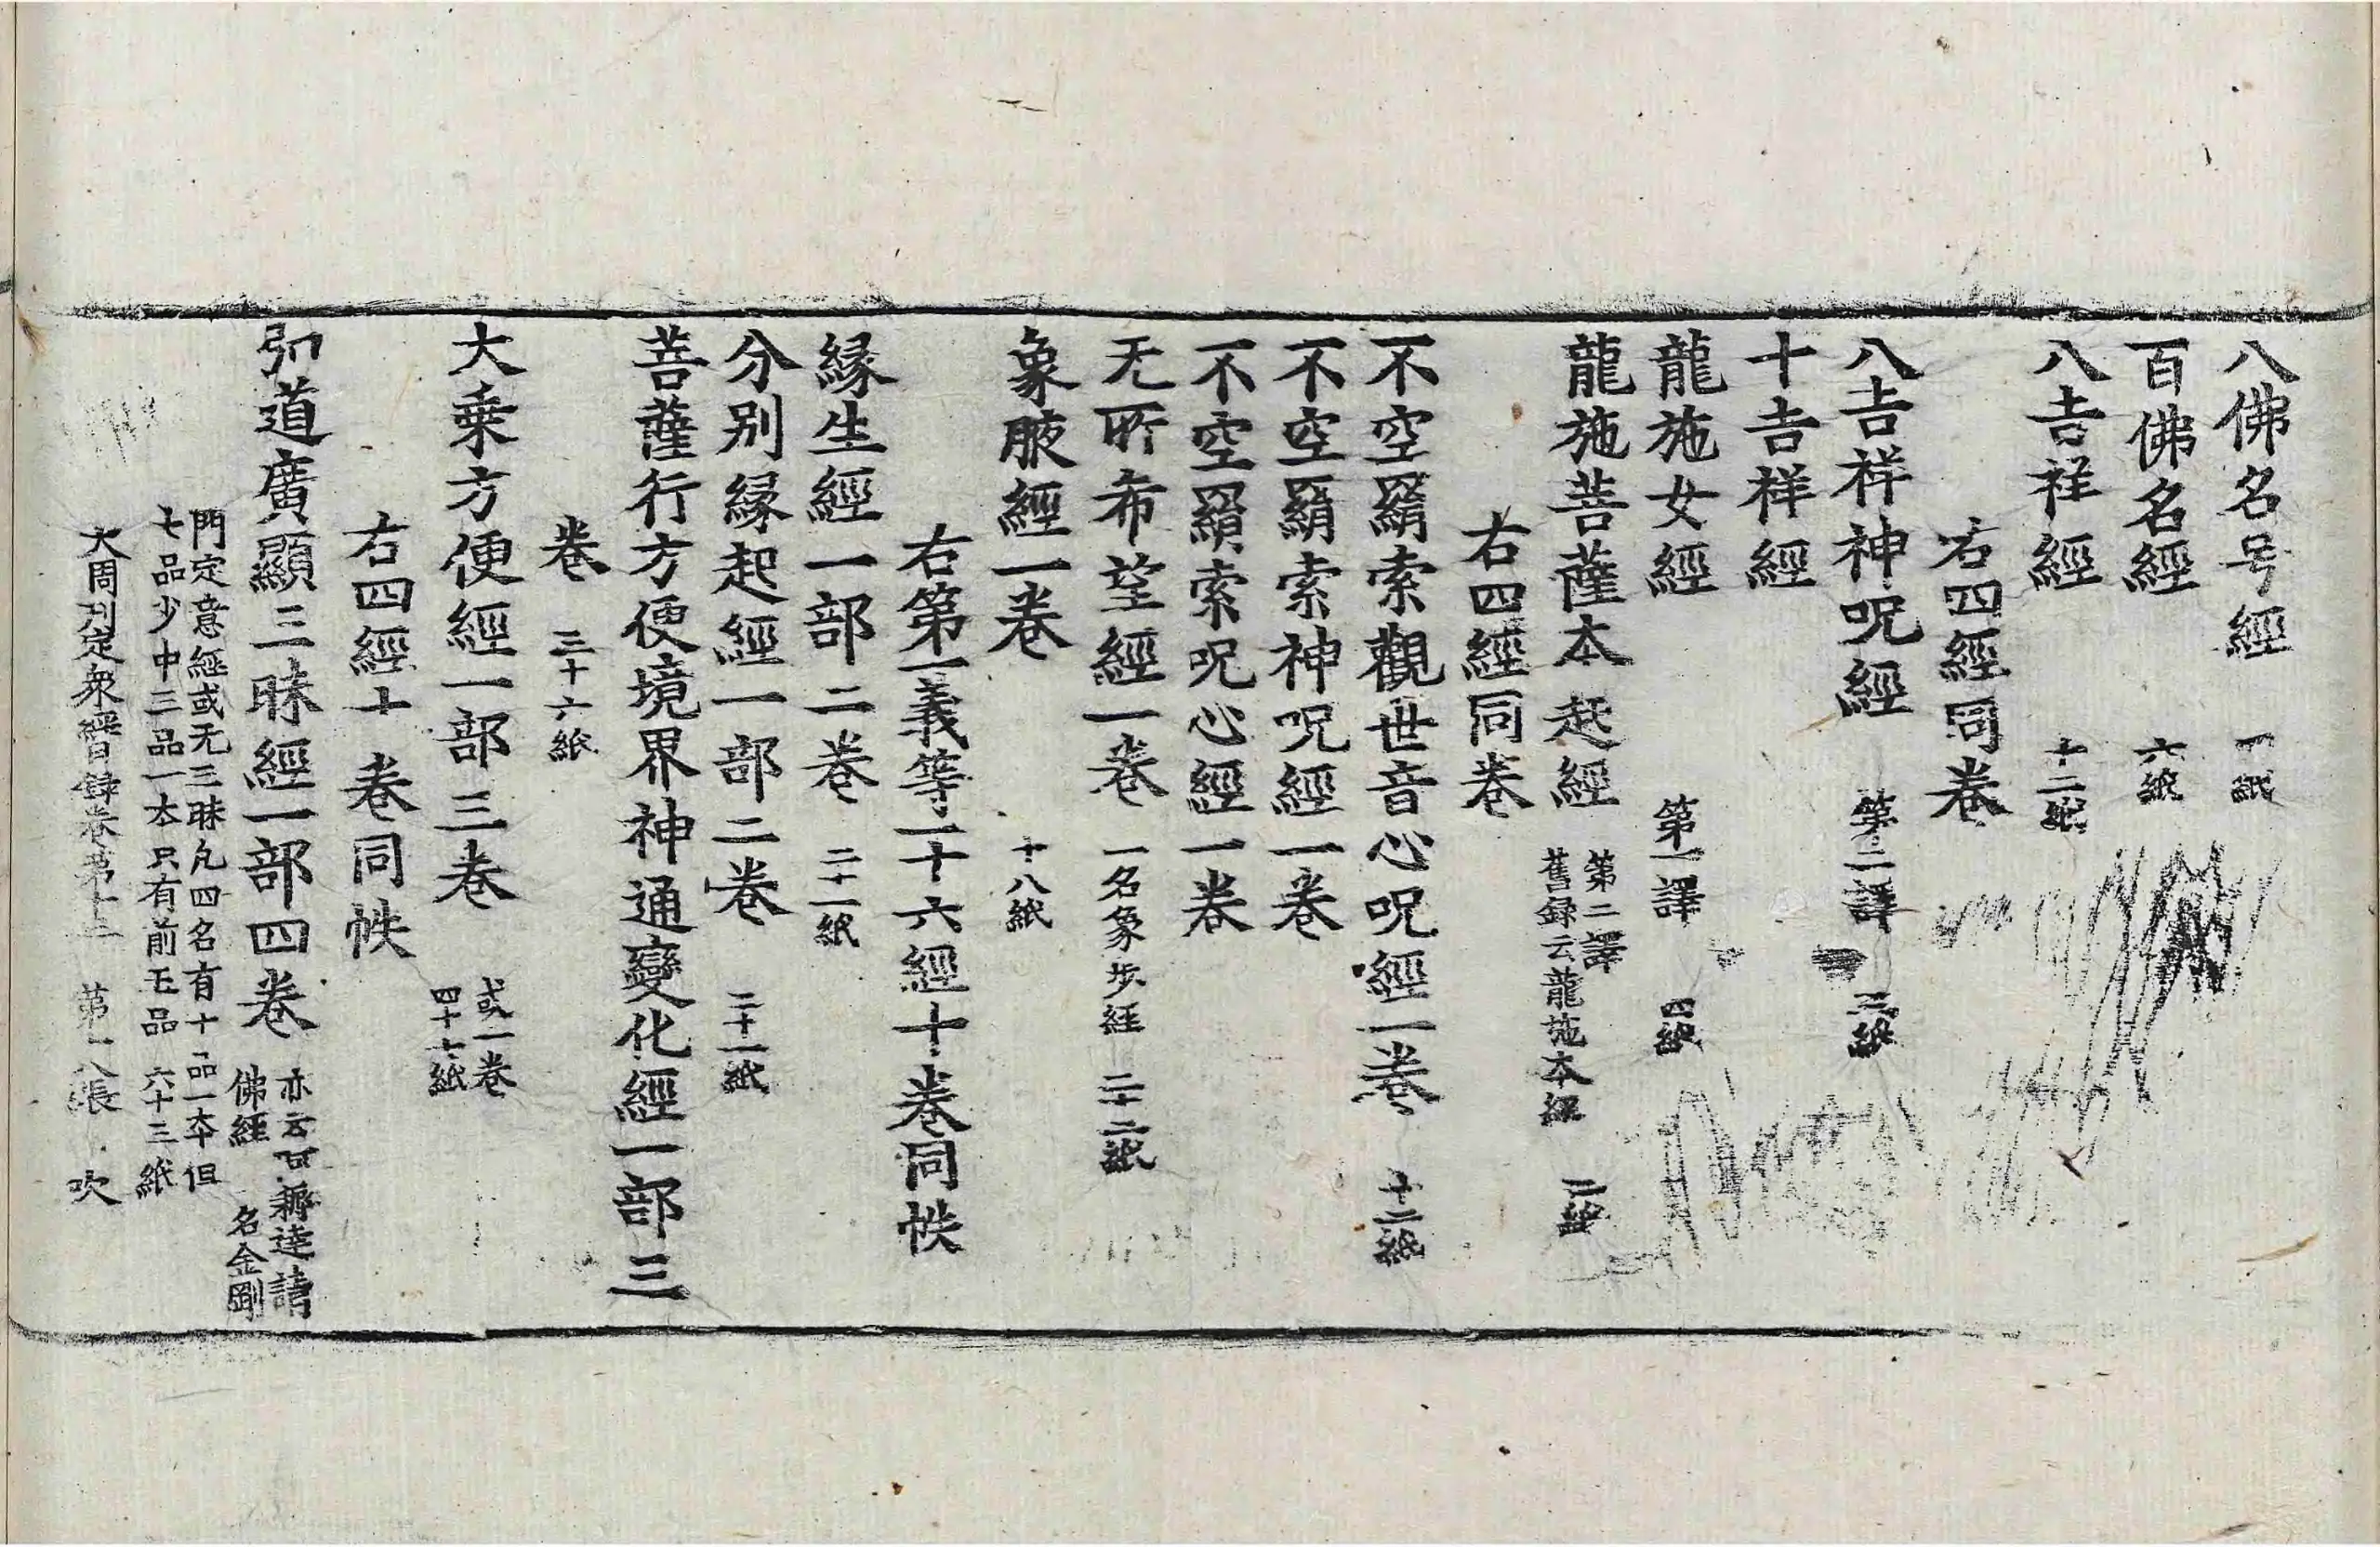 八佛名号經 一紙
百佛名經 六紙
八吉祥經 十二紙
右四經同卷
八吉祥神呪經 第二譯 三紙
十吉祥經
龍施女經 第一譯 四紙
龍施菩薩本起經 第二譯 舊録云龍施本經 二紙
右四經同卷
不空羂索觀世音心呪經一卷 十二紙
不空羂索神呪經一卷
不空羂索呪心經一卷
无所希望經一卷 一名象步經 二十二紙
象腋經一卷 十八紙
右第一義等一十六經十卷同帙
縁生經一部二卷 二十一紙
分别縁起經一部二卷 二十一紙
菩薩行方便境界神通變化經一部三
卷 三十六紙
大乗方便經一部三卷 或一卷 四十七紙
右四經十卷同帙
弘道廣顯三昧經一部四卷 亦云阿耨達請 佛經 名金剛
門定意經或无三昧凡四名有十品一本但
七品少中三品一本只有前七品 六十三紙
大周刋定衆經目録卷第十三 第八張 吹